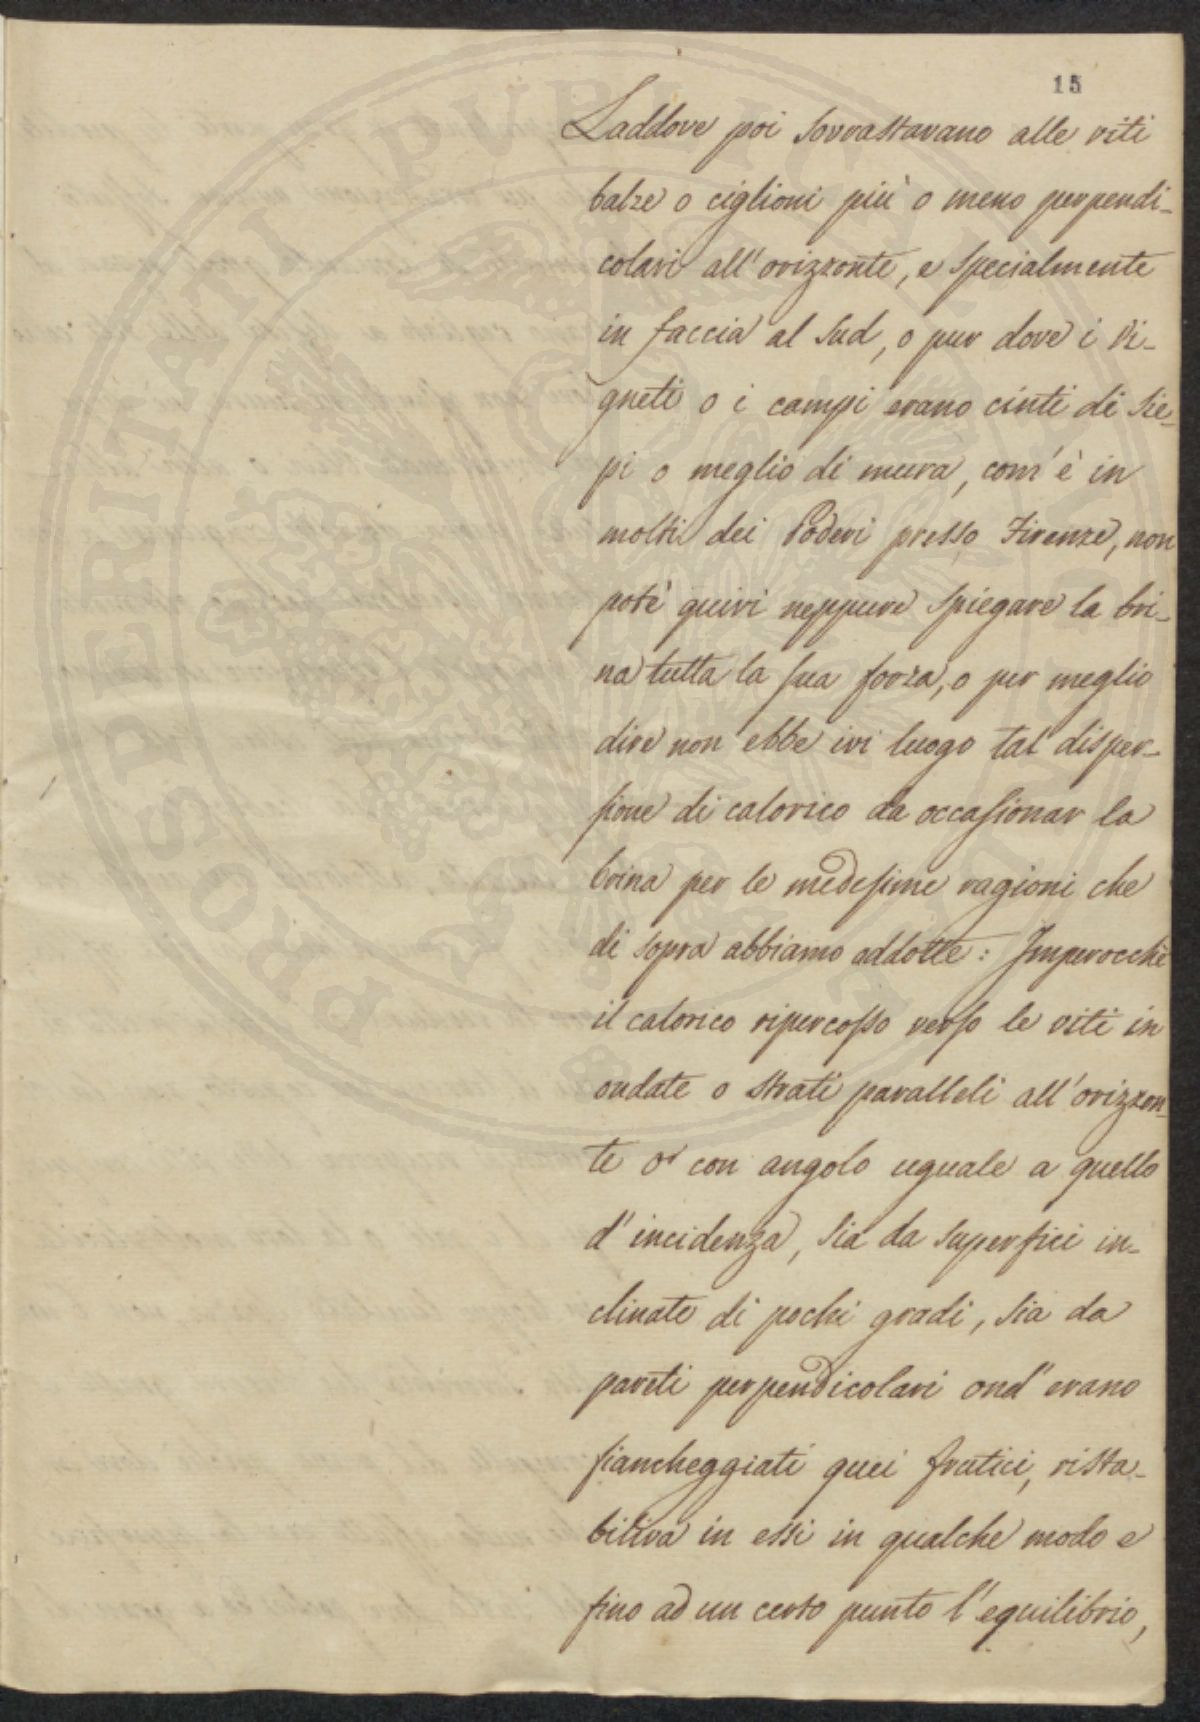 15
Laddove poi sovrastavano alle viti
balze o ciglioni più o meno perpendi-
colari all'orizzonte, e specialmente
in faccia al Sud, o pur dove i Vi-
gneti o i campi erano cinti di sie-
pi o meglio di mura, com'è in
molti dei Poderi presso Firenze, non
potè quivi neppure spiegare la bri-
na tutta la sua forza, o per meglio
dire non ebbe ivi luogo tal disper-
sione di calorico da occasionar la
brina per le medesime ragioni che
di sopra abbiamo addotte: Imperocchè
il calorico ripercosso verso le viti in
ondate o strati paralleli all'orizzon-
te o con angolo uguale a quello
d'incidenza, sia da superfici in-
clinate di pochi gradi, sia da
pareti perpendicolari ond'erano
fiancheggiati quei frutici, rista-
biliva in essi in qualche modo e
fino ad un certo punto l'equilibrio,
PROSPERITATI PUBLICAE